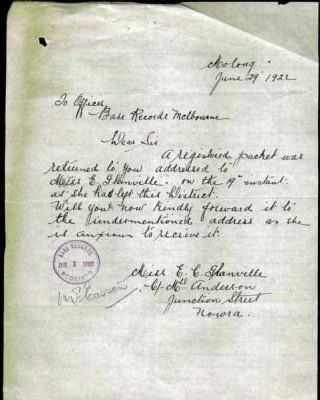 Molong.
June 29th 1922
To Officer
Base Records Melbourne
Dear Sir
A registered packet was
returned to you addressed to
Miss E. Glanville. on the 19th instant.
as she had left this District.
Will you now kindly forward it to
the undermentioned address as she
is anxious to recieve it.
Miss E. C. Glanville
C/- Mrs Anderson
Junction Street
Nowra.
BASE RECORDS
1922